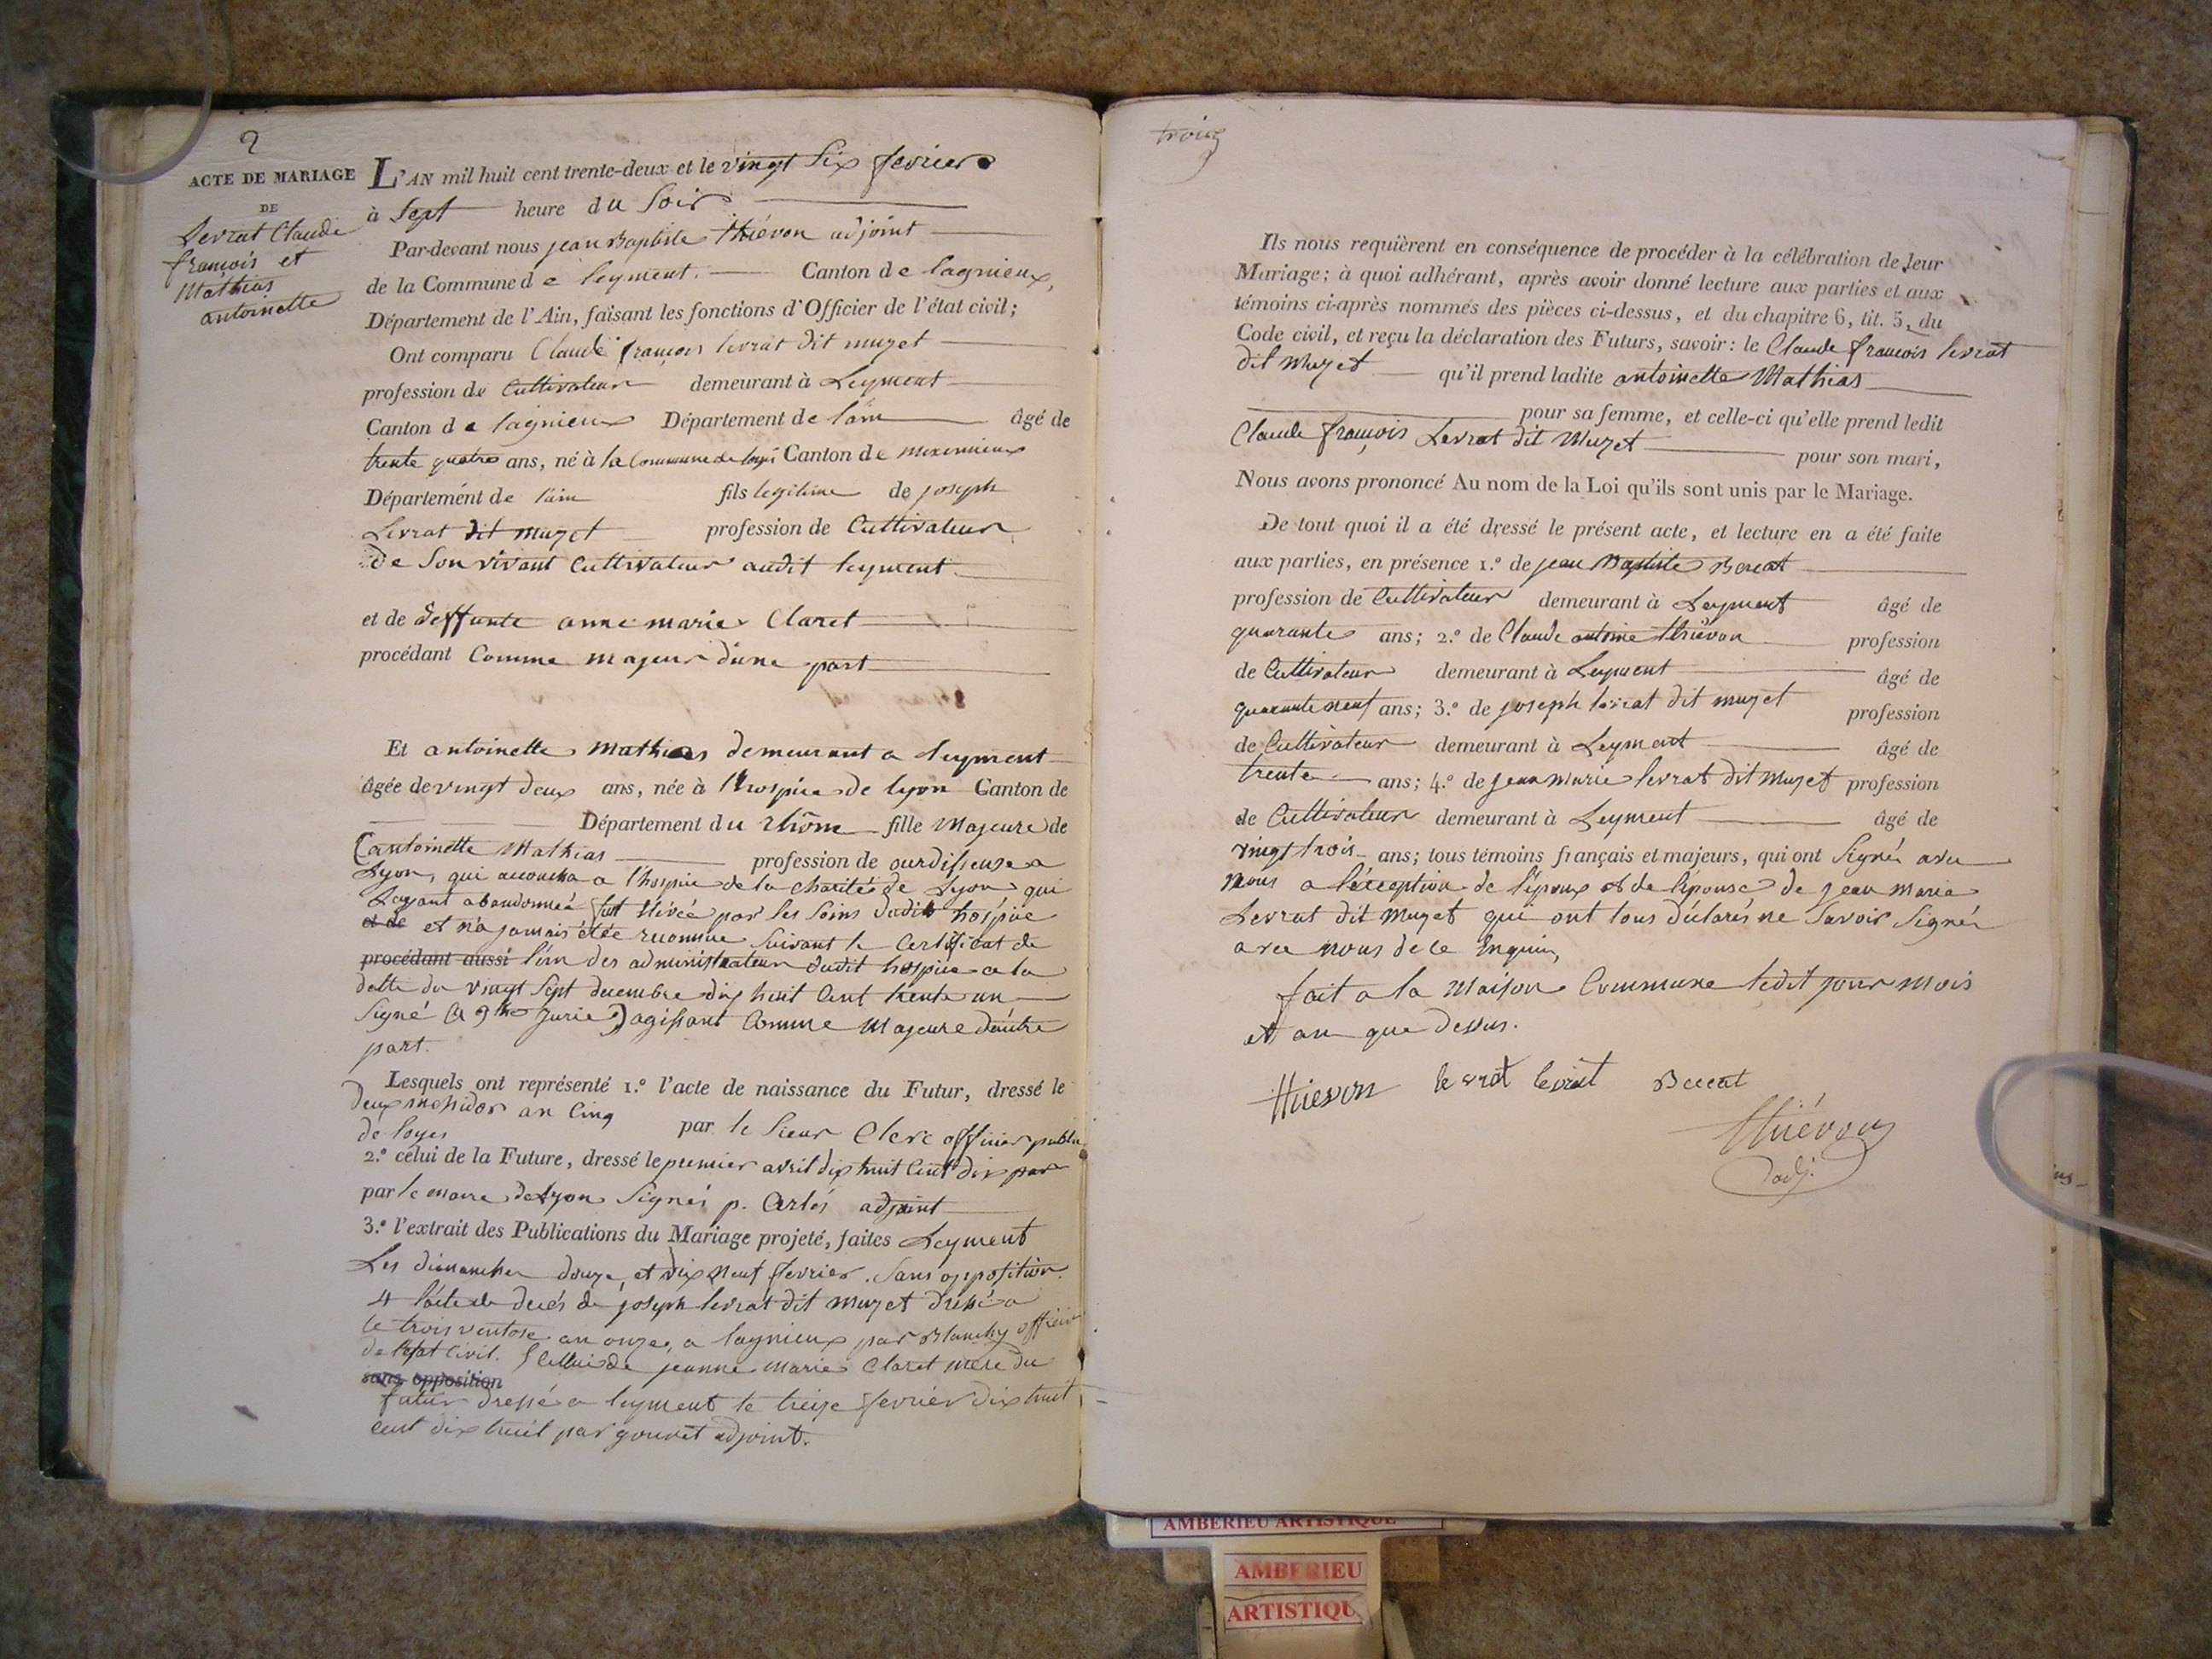 2
ACTE DE MARIAGE
DE
Levrat Claude
françois et
Mathias
antoinette
L'AN mil huit cent trente-deux et le vingt Six fevrier
à Sept heure du Soir
Par-devant nous jean Baptiste thiévon adjoint
de la Commune de leyment. Canton de lagnieux,
Département de l'Ain, faisant les fonctions d'Officier de l'état civil;
Ont comparu Claude françois levrat dit muzet
profession de Cultivateur demeurant à Leyment
Canton de lagnieux Département de l'ain âgé de
trente quatre ans, né à la Commune de loyes Canton de meximieux
Département de l'ain fils legitime de joseph
Levrat dit muzet profession de Cultivateur
de Son vivant Cultivateur audit leyment
et de deffunte anne marie Claret
procédant Comme majeur d'une part
Et antoinette Mathias demeurant a leyment
âgée de vingt deux ans, née à l'hospice de lyon Canton de
Département du Rhône fille Majeure de
(antoinette Mathias profession de ourdisseuse a
Lyon, qui accoucha a l'hospice de la charitée de Lyon qui
Layant abandonneé fut élévée par les Soins dudit hospice
et de et n'a jamais étée reconnue Suivant le Certificat de
procédant aussi l'un des administrateur dudit hospice a la
datte du vingt Sept decembre dix huit Cent trente un
Signé) agissant Comme Majeure d'autre
part.
Lesquels ont représenté 1.º l'acte de naissance du Futur, dressé le
deux messidor an Cinq par le Sieur Clerc officier public
de loyes
2.º celui de la Future, dressé le premier avril dix huit Cent dix par
par le maire de Lyon Signés p. adjoint
3.º l'extrait des Publications du Mariage projeté, faites Leyment
Les dimanches douze, et dix neuf fevrier. Sans opposition.
4 l'acte de decés de joseph levrat dit muzet dressé a
le trois ventose an onze, a lagnieux par Blanchy officier
de l'etat Civil. 5 Celui de jeanne marie Claret mere du
sans opposition
futur dressé a leyment le treize fevrier dix huit
cent dix huit par gouvet adjoint.
trois
Ils nous requièrent en conséquence de procéder à la célébration de leur
Mariage; à quoi adhérant, après avoir donné lecture aux parties et aux
témoins ci-après nommés des pièces ci-dessus, et du chapitre 6, tit. 5, du
Code civil, et reçu la déclaration des Futurs, savoir: le Claude françois levrat
dit Muzet qu'il prend ladite antoinette Mathias
pour sa femme, et celle-ci qu'elle prend ledit
Claude françois Levrat dit Muzet pour son mari,
Nous avons prononcé Au nom de la Loi qu'ils sont unis par le Mariage.
De tout quoi il a été dressé le présent acte, et lecture en a été faite
aux parties, en présence 1.º de jean Baptiste
profession de Cultivateur demeurant à Leyment âgé de
quarante ans; 2.º de Claude antoine thiévon profession
de Cultivateur demeurant à Leyment âgé de
quarante neuf ans; 3.º de joseph levrat dit muzet profession
de Cultivateur demeurant à Leyment âgé de
trente ans; 4.º de jean marie levrat dit Muzet profession
de Cultivateur demeurant à Leyment âgé de
vingt trois ans; tous témoins français et majeurs, qui ont Signé avec
Nous a l'éxception de l'époux et de l'épouse de jean marie
Levrat dit Muzet qui ont tous déclarés ne Savoir Signér
avec nous de ce Enquis,
fait a la Maison Commune ledit jour mois
et an que dessus.
thievon levrat levrat
thiévon
adj.
AMBERIEU ARTISTIQUE
AMBERIEU
ARTISTIQU